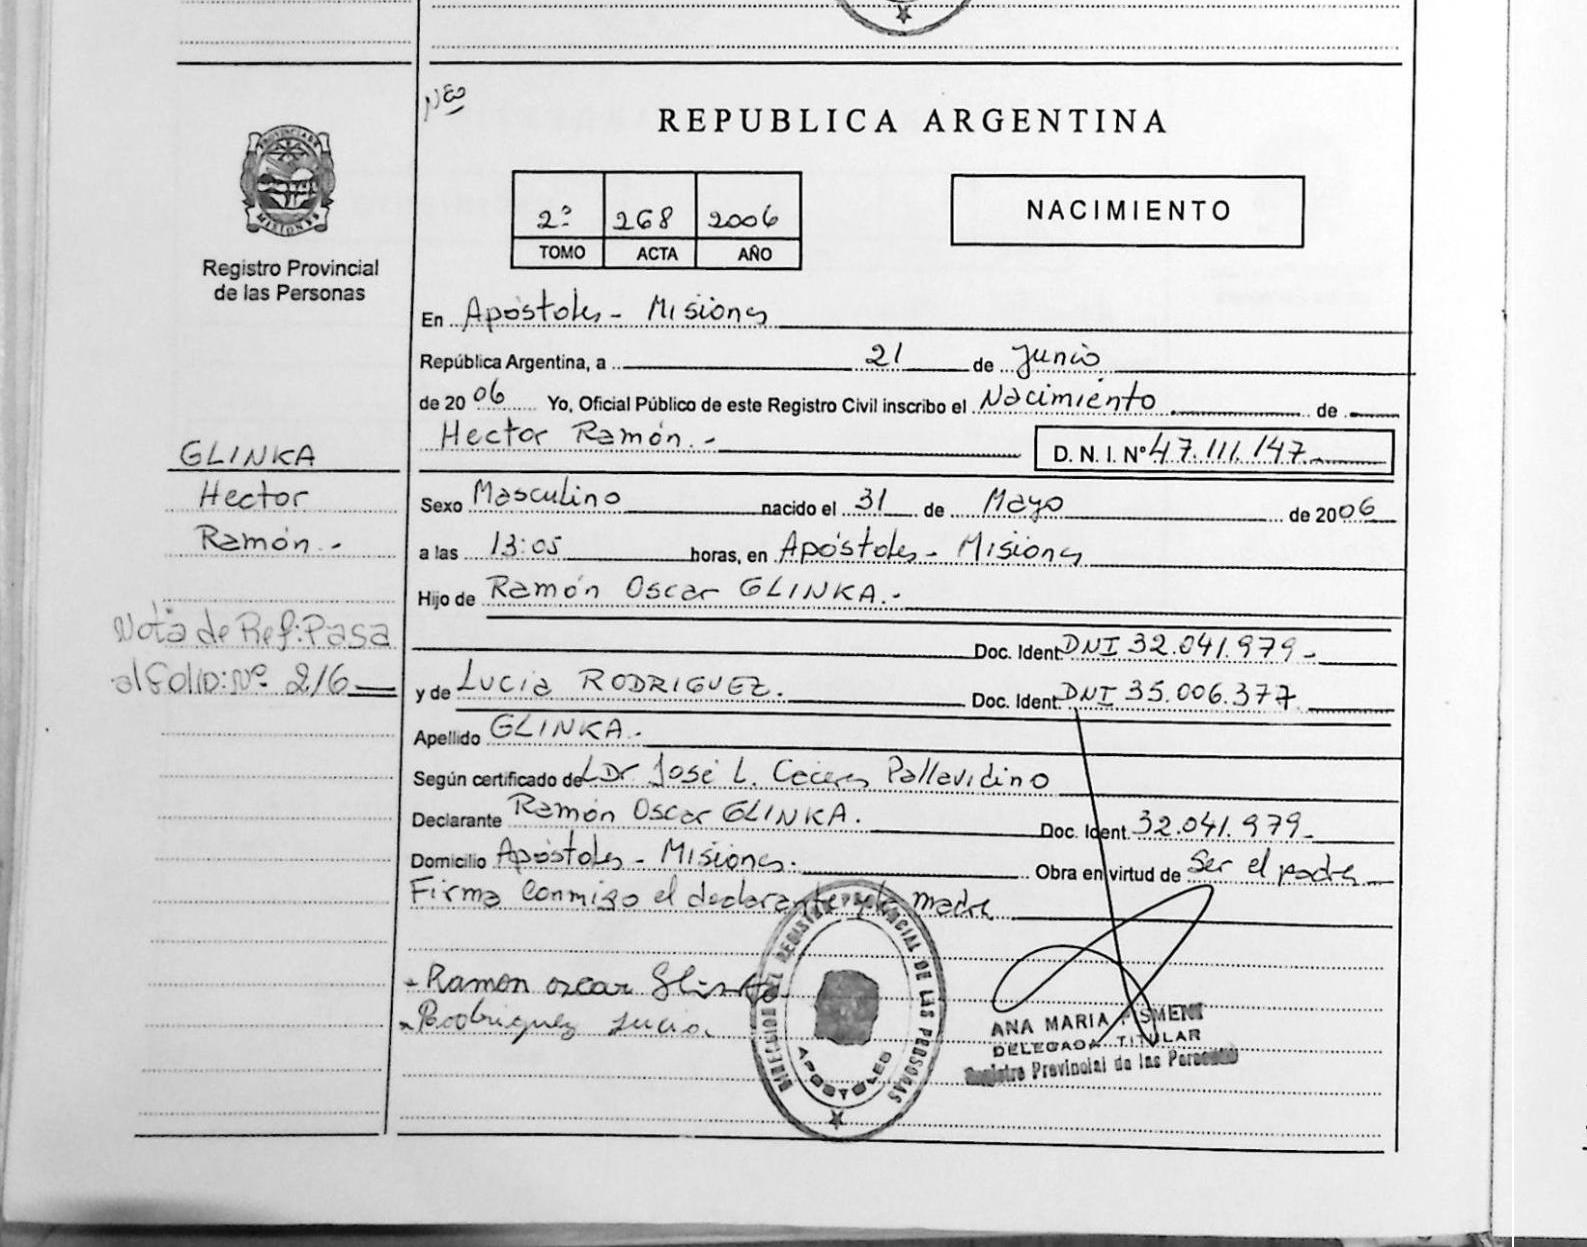 NEO
REPUBLICA ARGENTINA
PROVINCIA DE
MISIONES
Registro Provincial
de las Personas
2º 268 2006
TOMO ACTA AÑO
NACIMIENTO
En Apóstoles - Misiones
República Argentina, a 21 de Junio
de 2006 Yo, Oficial Público de este Registro Civil inscribo el Nacimiento de
Hector Ramón.- D. N. I. Nº 47.111.147
GLINKA
Hector
Ramón.-
Sexo Masculino nacido el 31 de Mayo de 2006
a las 13:05 horas, en Apóstoles - Misiones
Hijo de Ramón Oscar GLINKA.-
Doc. Ident. DNI 32.041.979-
Nota de Ref: Pasa
al folio: Nº 216
y de Lucia RODRIGUEZ. Doc. Ident. DNI 35.006.377
Apellido GLINKA.-
Según certificado de Dr José L. Ceceres Pallavidino
Declarante Ramón Oscar GLINKA. Doc. Ident. 32.041.979-
Domicilio Apóstoles - Misiones. Obra en virtud de Ser el padre
Firma conmigo el declarante y la madre
- Ramon oscar Glinka
- Rodriguez Lucia.
DIRECCION DEL REGISTRO PROVINCIAL DE LAS PERSONAS
APOSTOLES
ANA MARIA
DELEGADA TITULAR
Registro Provincial de las Personas